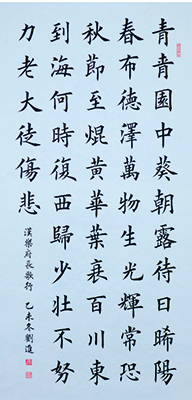 青青園中葵朝露待日晞陽
春布德澤萬物生光輝常恐
秋節至焜黃華葉衰百川東
到海何時復西歸少壯不努
力老大徒傷悲
漢樂府長歌行 乙未冬劉進